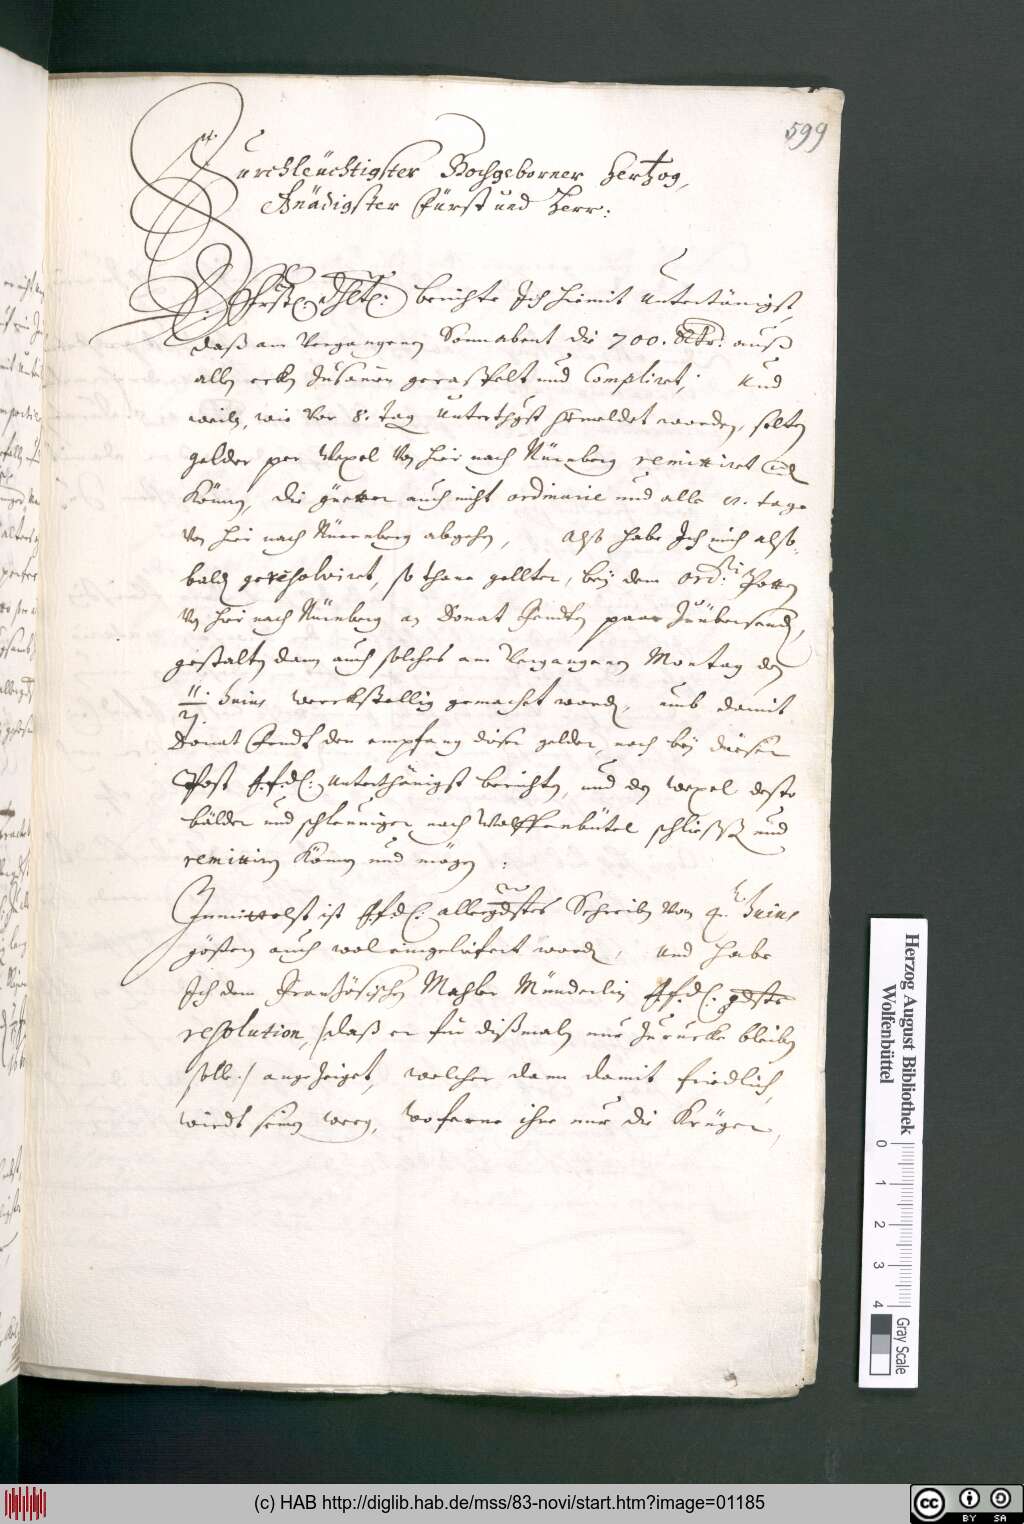 599
Durchleüchtigster Hochgeborner Hertzog,
Gnädigster Fürst und Herr:
E. Fürstl. Dhlt: berichte Ich hiemit Untertänigst
daß am Vergangenen Sonnabent die 700. Rtr: auß
allen ecken zusamen geraspelt und Compliret; Und
weiln, wie vor 8. tag Unterthgst gemeldet worden, solten
gelder per Wexel von hier nach Nürnberg remittiret
Können, die güetter auch nicht ordinarie und alle tage
von hier nach Nürnberg abgehen, Alß habe Ich mich alßo-
bald geresolviret, so thane gellter, bey dem ord: Potten
von hier nach Nürnberg an Donat Fendten paar Zuübersenden,
gestalten dann auch solches am Vergangenen Montag den
11./21. Junius werckstellig gemachet worden, umb damit
Donat Fendt den empfang diser gelder, noch bey dieser
Post F.f.d: unterthänigst berichten, und den Wexel desto
bälder und schleuniger nach Wolffenbütel schließen und
remittiren Können und mögen:
Inmittelst ist F.f.d: allergdstes Schreiben vom 4. Junius
gösteren auch wol eingelüfert worden, und habe
Ich dem Französischen Mahler Münderlin F.f.d: gdste
resolution, /:daß er für dißmalen nur Zurucke bleiben
solle:/ angezeiget, welcher dann damit friedlich,
wirdt seines weeg, woferne ihre nur die Krüger,
Herzog August Bibliothek
Wolfenbüttel
0 1 2 3 4
Gray Scale
(c) HAB http://diglib.hab.de/mss/83-novi/start.htm?image=01185
cc BY SA